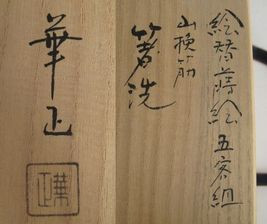 絵替蒔絵五客組
山換筋
箸洗
華正